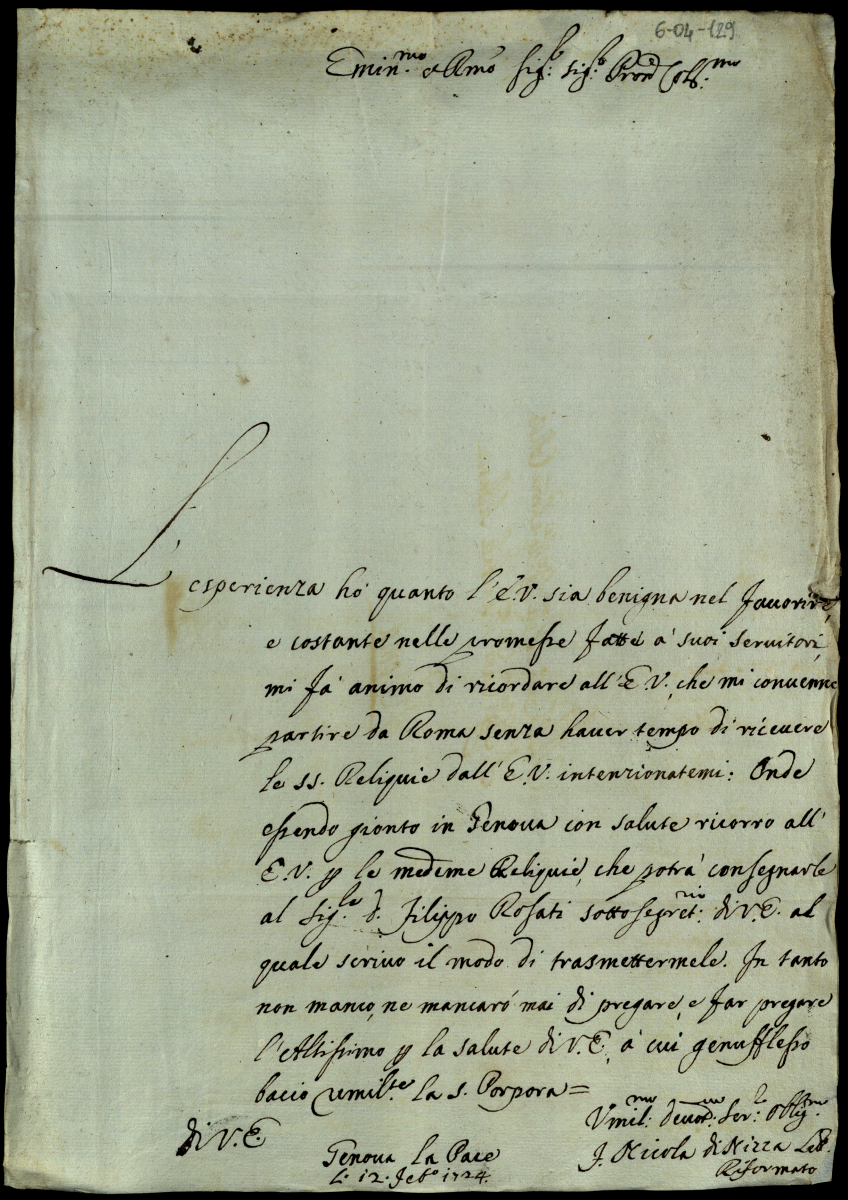 6-04-129
Emin.mo e Rmo Sig.r Sig.r Pron Col.mo
L'
esperienza hò quanto l'E.V. sia benigna nel favorire,
e costante nelle promesse fatte à suoi servitori,
mi fà animo di ricordare all'E.V., che mi convenne
partire da Roma senza haver tempo di ricevere
le ss. Reliquie dall'E.V. intenzionatemi: Onde
essendo gionto in Genova con salute ricorro all'
E.V. p le medeme Reliquie, che potrà consegnarle
al Sig.re D. Filippo Rosati sottosegret.rio di V.E. al
quale scrivo il modo di trasmettermele. In tanto
non manco, ne mancarò mai di pregare, e far pregare
l'Altissimo p la salute di V.E. à cui genuflesso
bacio umil.te la s. Porpora =
di V.E.
Genova la Pace
li 12. Feb.o 1724.
Umil.mo devot.mo Ser.re Obblig.mo
F. Nicola di Nizza Let.
Riformato